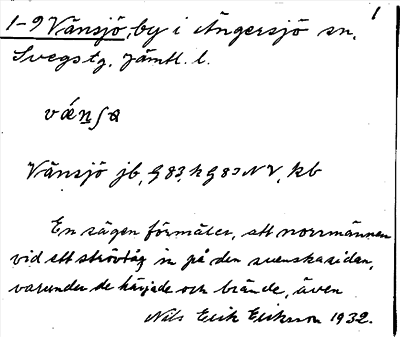 1
1-9 Vänsjö, by i Ängersjö sn,
Svegs tg, Jämtl. l.
Vänsjö jb,
En sägen förmäler, att norrmännen
vid ett strövtåg in på den svenska sidan,
varunder de härjade och brände, även
Nils Erik Eriksson 1932.